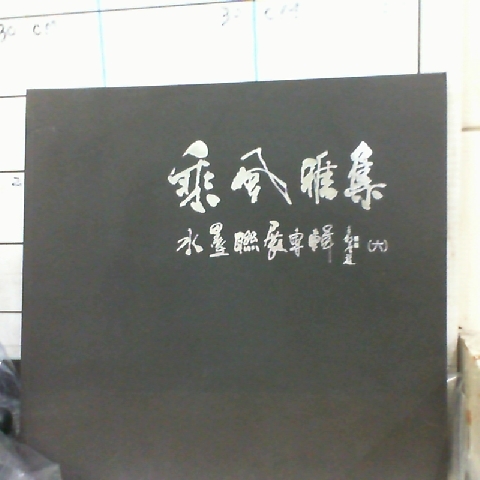 乘風雅集
水墨聯展專輯 (六)